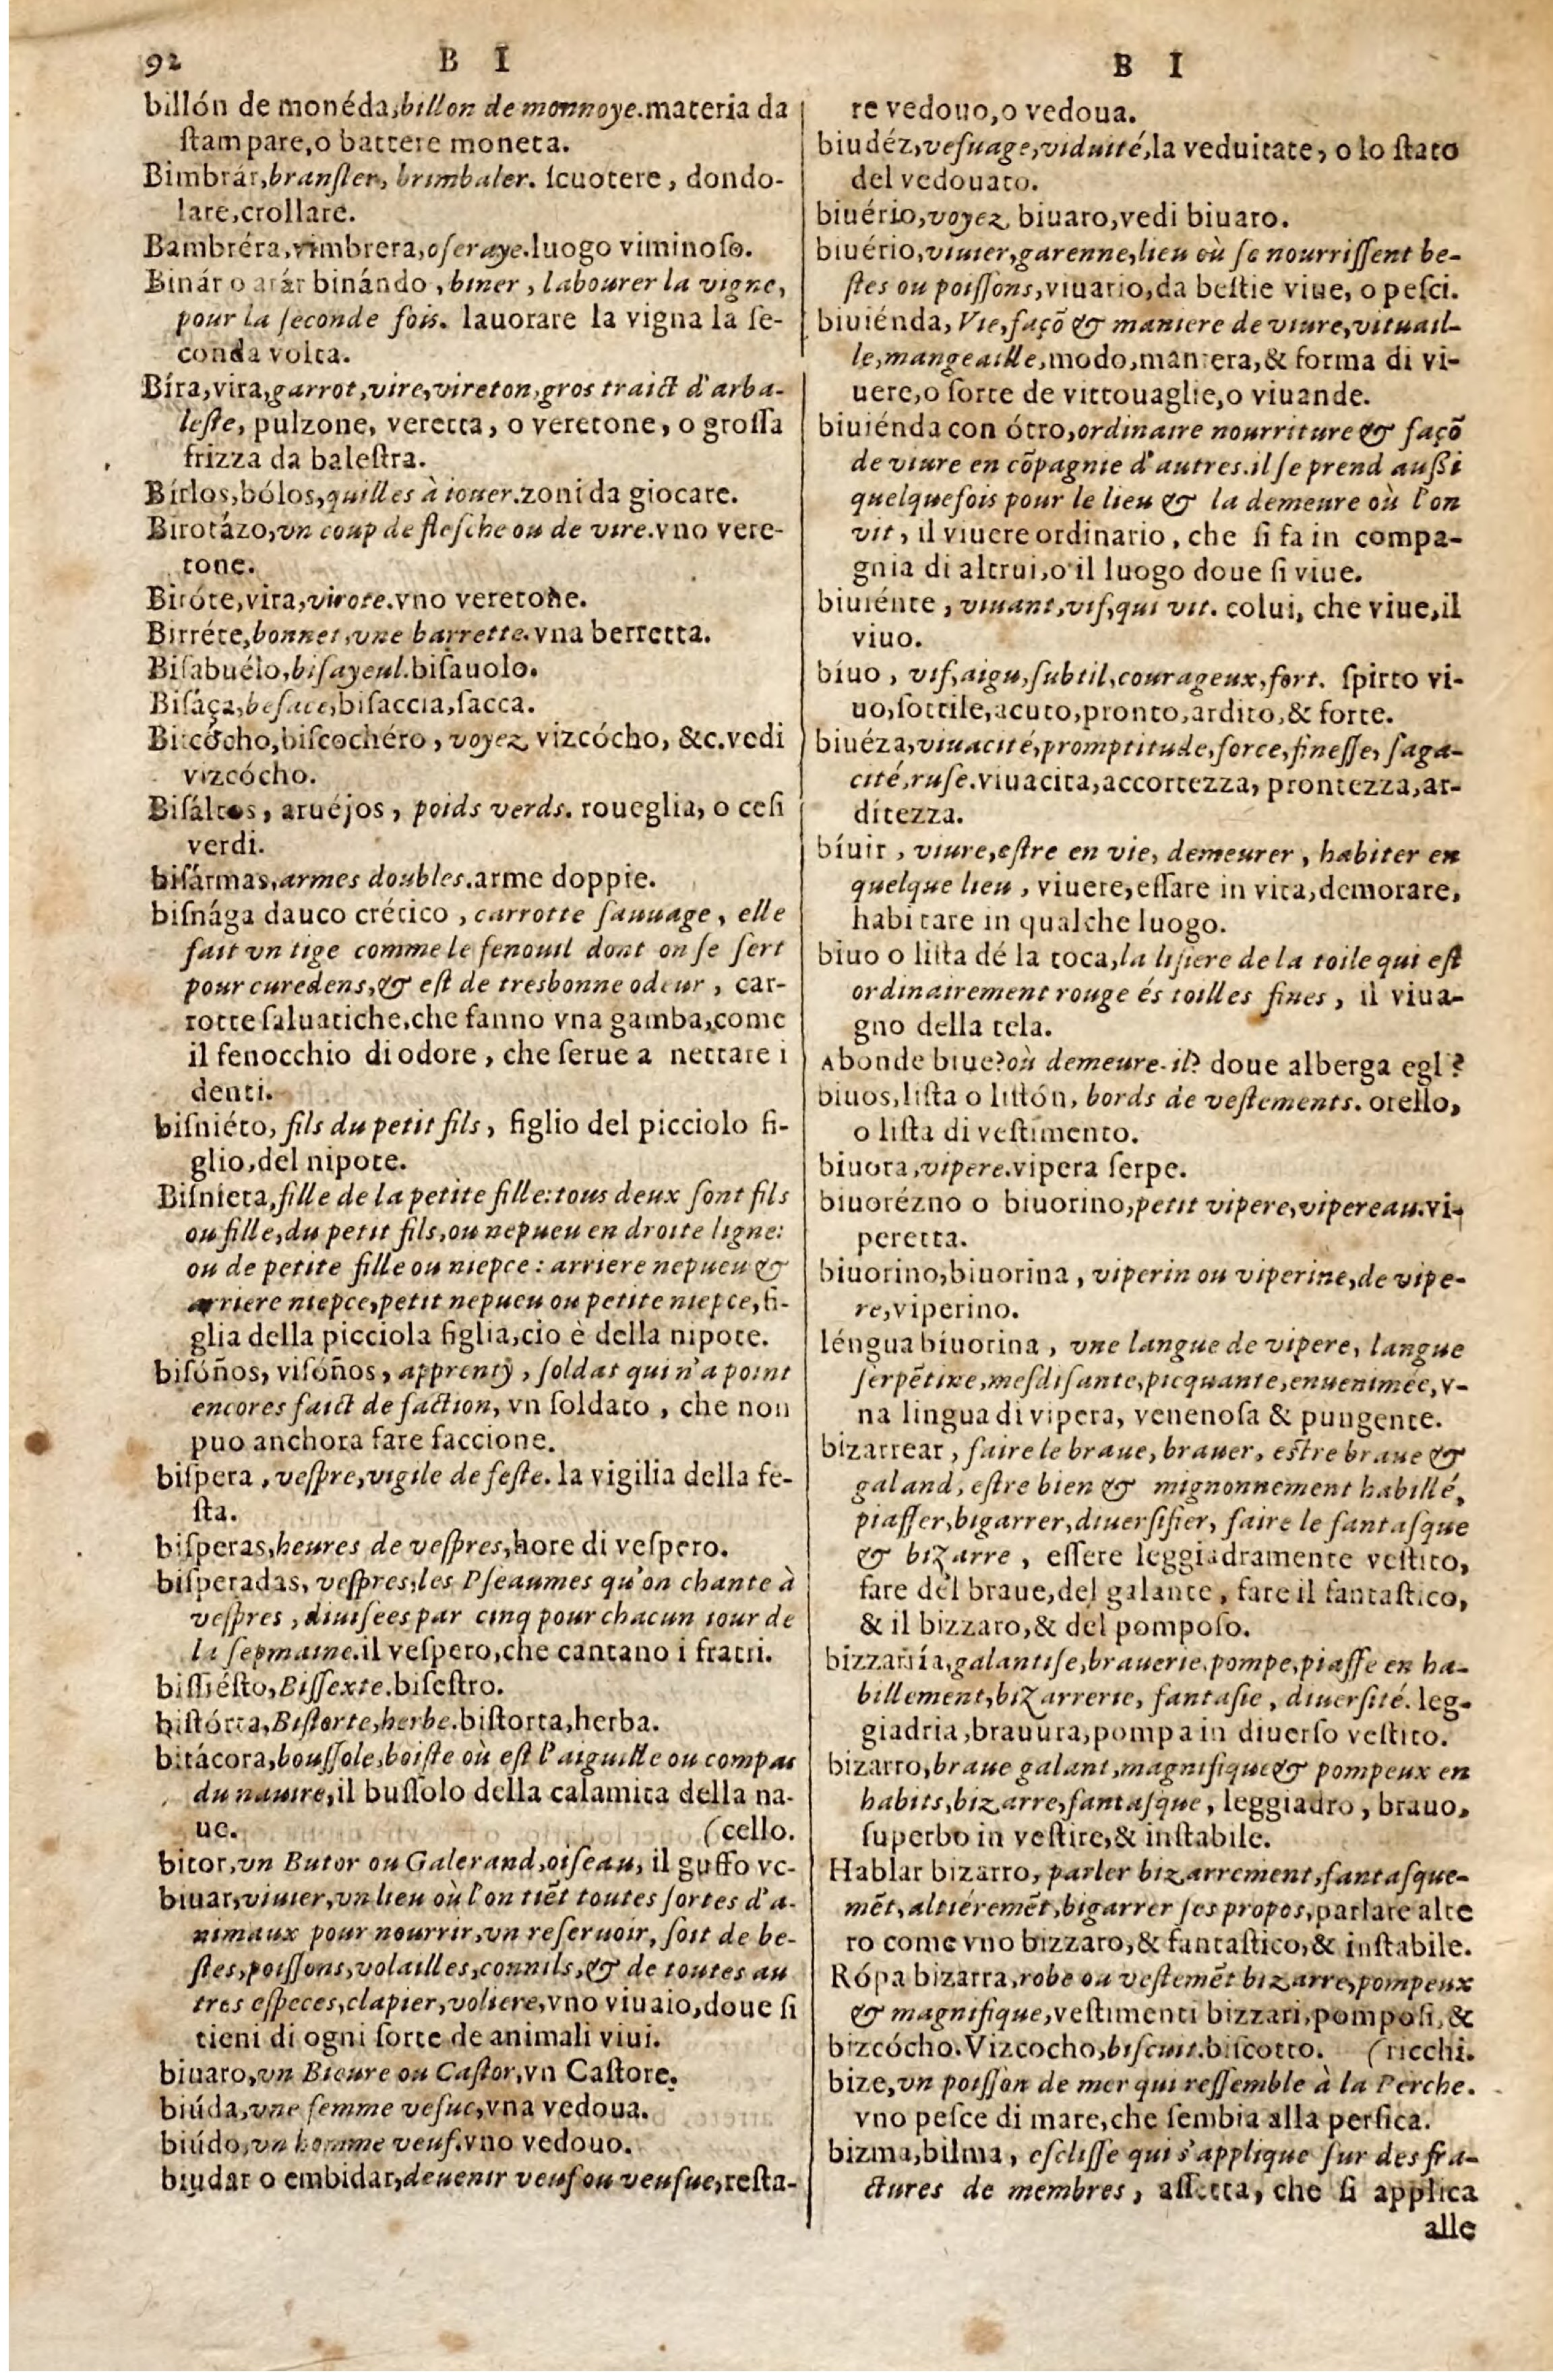 92 B I
billón de monéda, billon de monnoye. materia da
ſtampare, o battere moneta.
Bimbrár, branſler, brimbaler. ſcuotere, dondo-
lare, crollare.
Bambréra, vimbrera, oſeraye. luogo viminoſo.
Binár o arár binándo, biner, labourer la vigne,
pour la ſeconde fois. lauorare la vigna la ſe-
conda volta.
Bíra, vira, garrot, vire, vireton, gros traict d'arba-
leſte, pulzone, veretta, o veretone, o groſſa
frizza da baleſtra.
Bírlos, bólos, quilles à iouer. zoni da giocare.
Birotázo, vn coup de fleſche ou de vire. vno vere-
tone.
Biróte, vira, virote. vno veretone.
Birréte, bonnet, vne barrette. vna berretta.
Biſabuélo, biſayeul. biſauolo.
Biſáça, beſace, biſaccia, ſacca.
Bitcócho, biſcochéro, voyez vizcócho, &c. vedi
vizcócho.
Biſáltos, aruéjos, poids verds. roueglia, o ceſi
verdi.
biſármas, armes doubles. arme doppie.
biſnága dauco crético, carrotte ſauuage, elle
fait vn tige comme le fenouil dont on ſe ſert
pour curedens, & eſt de tresbonne odeur, car-
rotte ſaluatiche, che fanno vna gamba, come
il fenocchio di odore, che ſerue a nettare i
denti.
biſniéto, fils du petit fils, figlio del picciolo fi-
glio, del nipote.
Biſnieta, fille de la petite fille: tous deux ſont fils
ou fille, du petit fils, ou nepueu en droite ligne:
ou de petite fille ou niepce: arriere nepueu &
arriere niepce, petit nepueu ou petite niepce, fi-
glia della picciola figlia, cio è della nipote.
biſóños, viſóños, apprenty, ſoldat qui n'a point
encores faict de faction, vn ſoldato, che non
puo anchora fare faccione.
biſpera, veſpre, vigile de feſte. la vigilia della fe-
ſta.
biſperas, heures de veſpres, hore di veſpero.
biſperadas, veſpres, les Pſeaumes qu'on chante à
veſpres, diuiſees par cinq pour chacun iour de
la ſepmaine. il veſpero, che cantano i fratri.
biſſiéſto, Biſſexte. biſeſtro.
biſtórta, Biſtorte, herbe. biſtorta, herba.
bitácora, bouſſole, boiſte où eſt l'aiguille ou compas
du nauire, il buſſolo della calamita della na-
ue. (cello.
bitor, vn Butor ou Galerand, oiſeau, il guffo vc-
biuar, viuier, vn lieu où l'on tiēt toutes ſortes d'a-
nimaux pour nourrir, vn reſeruoir, ſoit de be-
ſtes, poiſſons, volailles, connils, & de toutes au
tres eſpeces, clapier, voliere, vno viuaio, doue ſi
tieni di ogni ſorte de animali viui.
biuaro, vn Bieure ou Caſtor, vn Caſtore.
biúda, vne femme vefue, vna vedoua.
biúdo, vn homme veuf. vno vedouo.
biudar o embidar, deuenir veuf ou veufue, reſta-
B I
re vedouo, o vedoua.
biudéz, vefuage, viduité, la veduitate, o lo ſtato
del vedouato.
biuério, voyez biuaro, vedi biuaro.
biuério, viuier, garenne, lieu où ſe nourriſſent be-
ſtes ou poiſſons, viuario, da beſtie viue, o peſci.
biuiénda, Vie, façõ & maniere de viure, vituail-
le, mangeaille, modo, maniera, & forma di vi-
uere, o ſorte de vittouaglie, o viuande.
biuiénda con ótro, ordinaire nourriture & façõ
de viure en cõpagnie d'autres. il ſe prend außi
quelquefois pour le lieu & la demeure où l'on
vit, il viuere ordinario, che ſi fa in compa-
gnia di altrui, o il luogo doue ſi viue.
biuiénte, viuant, vif, qui vit. colui, che viue, il
viuo.
bíuo, vif, aigu, ſubtil, courageux, fort. ſpirto vi-
uo, ſottile, acuto, pronto, ardito, & forte.
biuéza, viuacité, promptitude, force, fineſſe, ſaga-
cité, ruſe. viuacita, accortezza, prontezza, ar-
ditezza.
bíuir, viure, eſtre en vie, demeurer, habiter en
quelque lieu, viuere, eſſare in vita, demorare,
habitare in qualche luogo.
biuo o liſta dé la toca, la liſiere de la toile qui eſt
ordinairement rouge és toilles fines, il viua-
gno della tela.
Abonde biue? où demeure-il? doue alberga egl?
biuos, liſta o liſtón, bords de veſtements. orello,
o liſta di veſtimento.
biuora, vipere. vipera ſerpe.
biuorézno o biuorino, petit vipere, vipereau. vi-
peretta.
biuorino, biuorina, viperin ou viperine, de vipe-
re, viperino.
léngua biuorina, vne langue de vipere, langue
ſerpētine, meſdiſante, picquante, enuenimée, v-
na lingua di vipera, venenoſa & pungente.
bizarrear, faire le braue, brauer, eſtre braue &
galand, eſtre bien & mignonnement habillé,
piaffer, bigarrer, diuerſifier, faire le fantaſque
& bizarre, eſſere leggiadramente veſtito,
fare del braue, del galante, fare il fantaſtico,
& il bizzaro, & del pompoſo.
bizzarría, galantiſe, brauerie, pompe, piaffe en ha-
billement, bizarrerie, fantaſie, diuerſité. leg-
giadria, brauura, pompa in diuerſo veſtito.
bizarro, braue galant, magnifique & pompeux en
habits, bizarre, fantaſque, leggiadro, brauo,
ſuperbo in veſtire, & inſtabile.
Hablar bizarro, parler bizarrement, fantaſque-
mēt, altiéremēt, bigarrer ſes propos, parlare alte
ro come vno bizzaro, & fantaſtico, & inſtabile.
Rópa bizarra, robe ou veſtemēt bizarre, pompeux
& magnifique, veſtimenti bizzari, pompoſi, &
bizcócho. Vizcocho, biſcuit. biſcotto. (ricchi.
bize, vn poiſſon de mer qui reſſemble à la Perche.
vno peſce di mare, che ſembia alla perſica.
bizma, bilma, eſcliſſe qui s'applique ſur des fra-
ctures de membres, aſſetta, che ſi applica
alle